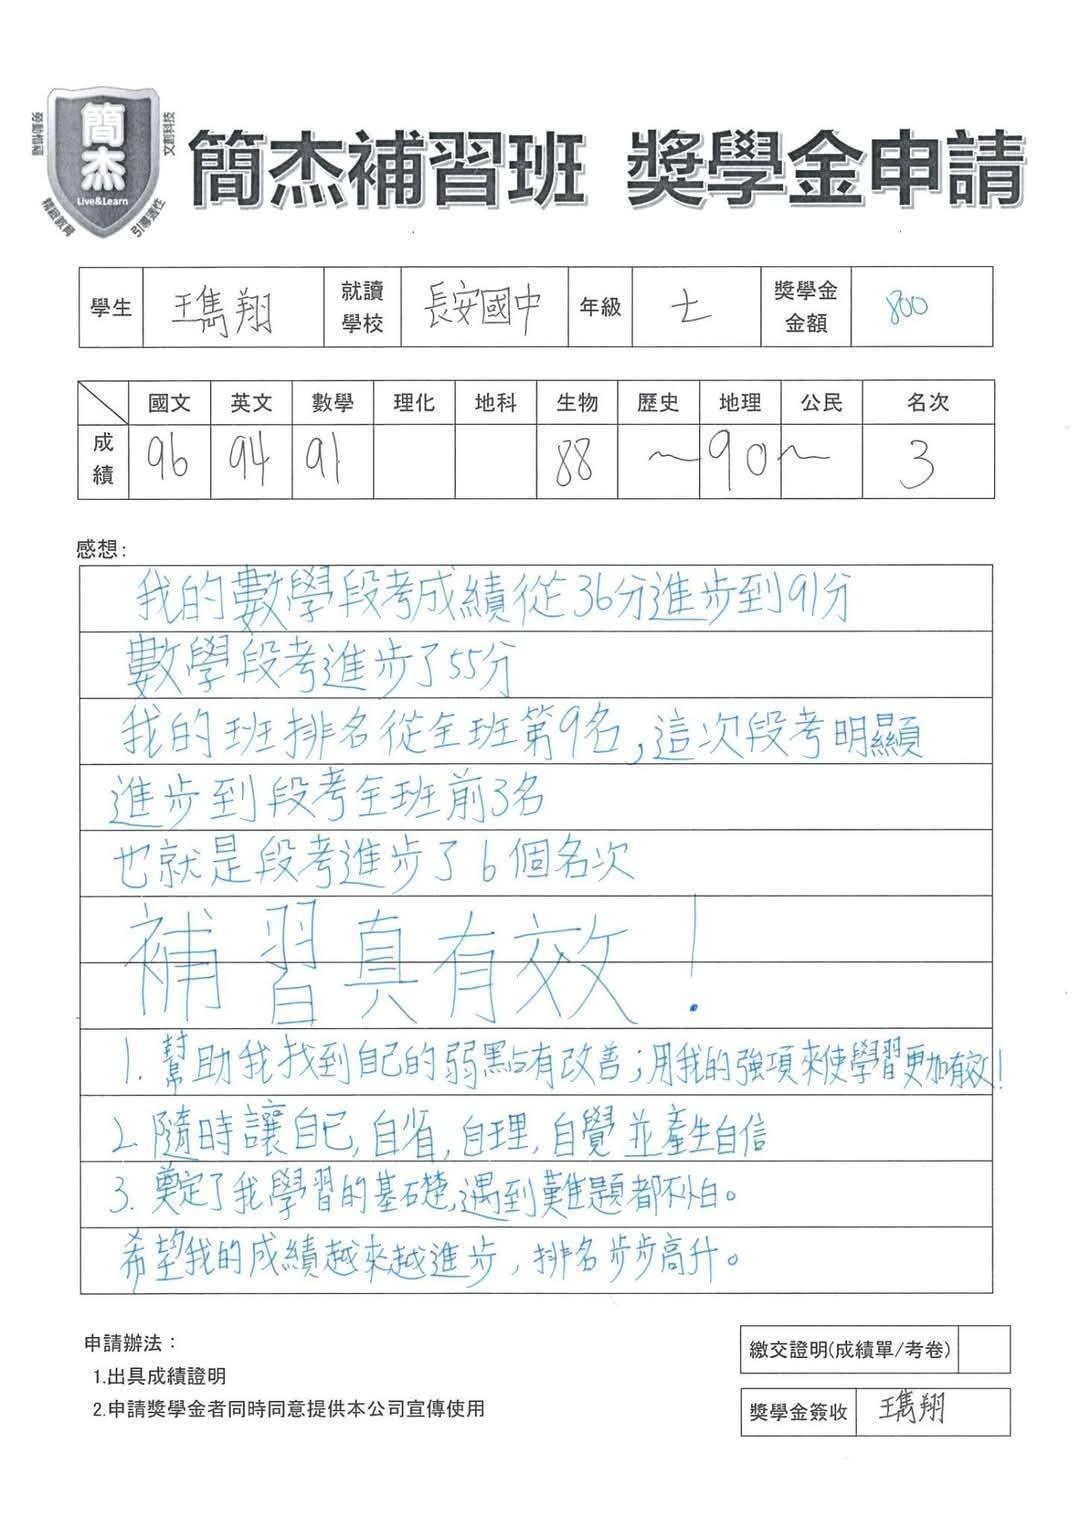 簡杰
Live&Learn
精緻教育
引導適性
文創科技
簡杰補習班 獎學金申請
學生 王雋翔 就讀學校 長安國中 年級 七 獎學金金額 800
國文 英文 數學 理化 地科 生物 歷史 地理 公民 名次
成績 96 94 91 88 ~90~ 3
感想:
我的數學段考成績從36分進步到91分
數學段考進步了55分
我的班排名從全班第9名,這次段考明顯
進步到段考全班前3名
也就是段考進步了6個名次
補習真有效!
1. 幫助我找到自己的弱點有改善;用我的強項來使學習更加有效!
2. 隨時讓自己,自省,自理,自覺並產生自信
3. 奠定了我學習的基礎,遇到難題都不怕。
希望我的成績越來越進步,排名步步高升。
申請辦法:
1.出具成績證明
2.申請獎學金者同時同意提供本公司宣傳使用
繳交證明(成績單/考卷)
獎學金簽收 王雋翔